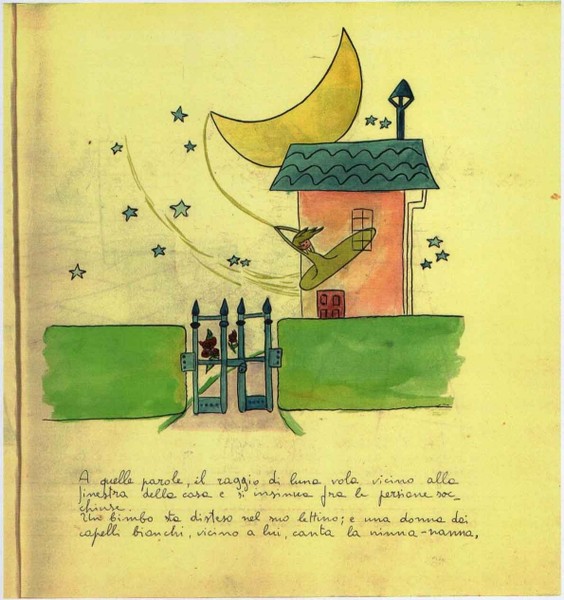 A quelle parole, il raggio di luna vola vicino alla
finestra della casa e si insinua fra le persiane soc_
chiuse.
Un bimbo sta disteso nel suo lettino; e una donna dai
capelli bianchi, vicino a lui, canta la ninna-nanna.